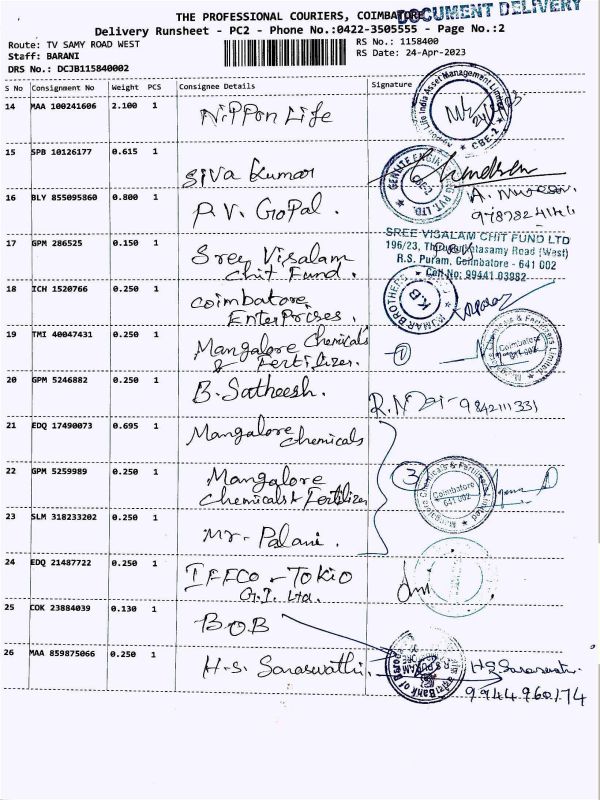 THE PROFESSIONAL COURIERS, COIMBATORE
DOCUMENT DELIVERY
Delivery Runsheet - PC2 - Phone No.:0422-3505555 - Page No.:2
Route: TV SAMY ROAD WEST
RS No.: 1158400
Staff: BARANI
RS Date: 24-Apr-2023
DRS No.: DCJB115840002
S No Consignment No Weight PCS Consignee Details Signature
14 MAA 100241606 2.100 1 Nippon Life
CBE-1
15 SPB 10126177 0.615 1 Siva Kumar
16 BLY 855095860 0.800 1 P.V. GoPal.
17 GPM 286525 0.150 1 Sree Visalam
Chit Fund.
SREE VISALAM CHIT FUND LTD
R.S. Puram, Coimbatore - 641 002
Cell No: 99441 03982
18 ICH 1520766 0.250 1 Coimbatore
Enterprises.
KUMAR BROTHERS
K.B
19 TMI 40047431 0.250 1 Mangalore Chemicals
& Fertilizer.
1
Mangalore Chemicals & Fertilizers Limited
Coimbatore
641 002
20 GPM 5246882 0.250 1 B. Satheesh.
9842111331
21 EDQ 17490073 0.695 1 Mangalore Chemicals
22 GPM 5259989 0.250 1 Mangalore
Chemicals & Fertilizer
3
Mangalore Chemicals & Fertilizers Limited
Coimbatore
641 002
23 SLM 318233202 0.250 1 Mr. Palani.
24 EDQ 21487722 0.250 1 IFFCO - Tokio
G.I. Ltd.
25 COK 23884039 0.130 1 BOB
26 MAA 859875066 0.250 1 H.S. Saraswathi.
H.S. Saraswathi
9944960174